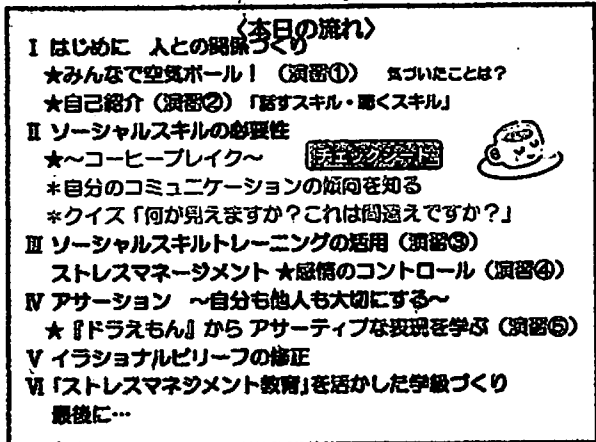 〈本日の流れ〉
Ⅰ はじめに 人との関係づくり
★みんなで空気ボール！（演習①） 気づいたことは？
★自己紹介（演習②）「話すスキル・聴くスキル」
Ⅱ ソーシャルスキルの必要性
★～コーヒーブレイク～
＊自分のコミュニケーションの傾向を知る
＊クイズ「何が見えますか？これは間違えですか？」
Ⅲ ソーシャルスキルトレーニングの活用（演習③）
ストレスマネージメント ★感情のコントロール（演習④）
Ⅳ アサーション ～自分も他人も大切にする～
★『ドラえもん』から アサーティブな表現を学ぶ（演習⑤）
Ⅴ イラショナルビリーフの修正
Ⅵ「ストレスマネジメント教育」を活かした学級づくり
最後に…